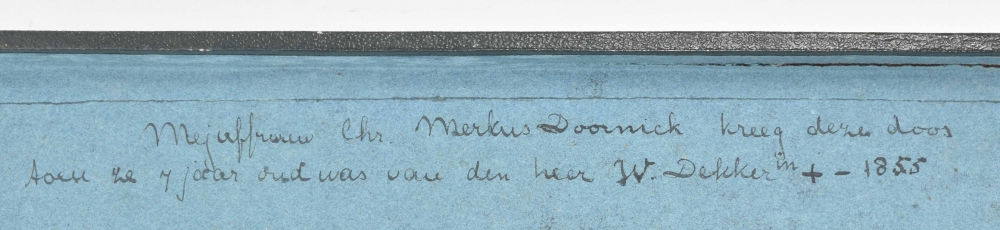 Mejuffrouw Chr. Merkus Doornick kreeg deze doos
toen ze 7 jaar oud was van den heer W. Dekker in + - 1855